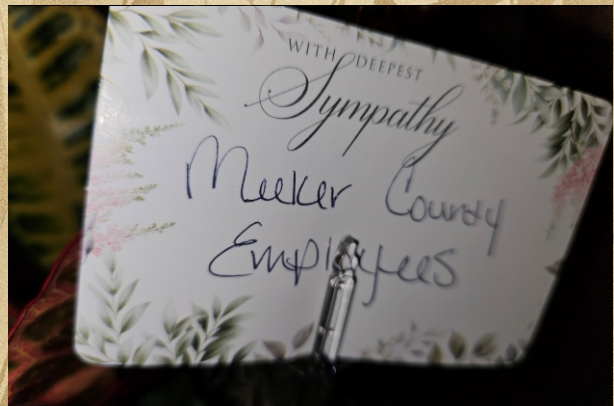 WITH DEEPEST
Sympathy
Meeker County
Employees